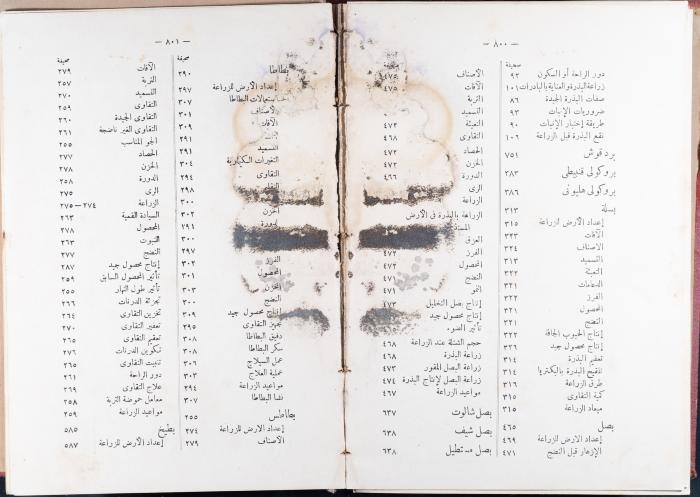 — ٨٠٠ —
صحيفة
دور الراحة أو السكون ٩٢
زراعة البذرة والعناية بالبادرات ١٠١
صفات البذرة الجيدة ٨٦
ضروريات الإنبات ٩٢
طريقة إختبار الإنبات ٩٠
نقع البذرة قبل الزراعة ١٠٦
بردقوش ٧٥١
بروكولى قنبيطى ٣٨٣
بروكولى هليونى ٣٨٦
بسلة ٣١٣
إعداد الأرض للزراعة ٣١٥
الآفات ٣٢٣
الاصناف ٣٢٤
التسميد ٣١٦
التعبئة ٣٢٢
الدعامات ٣٢١
الفرز ٣٢٢
المحصول ٣٢١
النضج ٣٢١
إنتاج الحبوب الجافة ٣٢٢
إنتاج محصول جيد ٣٢٦
تعفير البذرة ٣١٤
تلقيح البذرة بالبكتريا ٣١٤
طرق الزراعة ٣١٦
كمية التقاوى ٣١٥
ميعاد الزراعة ٣١٥
بصل ٤٦٥
إعداد الأرض للزراعة ٤٦٩
الإزهار قبل النضج ٤٧١
الأصناف ٤٧٥
الآفات ٤٧٥
التربة
التسميد
التعبئة ٤٧٣
التقاوى ٤٦٨
الحصاد ٤٧٢
الخزن ٤٧٢
الدورة ٤٦٦
الرى
الزراعة
الزراعة بالبذرة فى الأرض
العزق
الفرز ٤٧٢
المحصول ٤٧٢
النضج ٤٧١
النمو
إنتاج بصل التخليل ٤٧٣
إنتاج محصول جيد
تأثير الضوء
حجم الشتلة عند الزراعة ٤٦٨
زراعة البذرة ٤٦٨
زراعة البصل المقور ٤٧٣
زراعة البصل لإنتاج البذرة ٤٧٤
مواعيد الزراعة ٤٦٧
بصل شالوت ٦٣٧
بصل شيف ٦٣٨
بصل مستطيل ٦٣٨
— ٨٠١ —
صحيفة
بطاطا ٢٩٠
إعداد الأرض للزراعة ٢٩٧
إستعمالات البطاطا ٣٠٧
الأصناف ٣٠١
الآفات ٣٠٩
٢٩١
التسميد ٢٩١
التغيرات الكيماوية ٣٠٤
التقاوى ٢٩٤
٢٩٨
٣٠٠
الخزن ٣٠٢
الدورة ٢٩٤
٣٠٠
٢٩٧
الفرز ٣٠٢
المحصول ٣٠١
المخزن ٣٠٣
النضج ٣٠٠
إنتاج محصول جيد ٣٠٩
تجهيز التقاوى ٢٩٥
دقيق البطاطا ٣٠٨
سكر البطاطا ٣٠٨
عمل السيلاج ٣٠٦
عملية العلاج ٣٠٣
مواعيد الزراعة ٢٩٤
نشا البطاطا ٣٠٧
بطاطس ٢٥٥
إعداد الأرض للزراعة ٢٧٤
الأصناف ٢٧٩
صحيفة
الآفات ٢٧٩
التربة ٢٥٧
التسميد ٢٧٠
التقاوى ٢٥٩
التقاوى الجيدة ٢٦٠
التقاوى الغير ناضجة ٢٦١
الجو المناسب ٢٥٥
الحصاد ٢٧٧
الخزن ٢٧٨
الدورة ٢٥٨
الرى ٢٧٥
الزراعة ٢٧٤ — ٢٧٥
السيادة القمية ٢٦٣
المحصول ٢٧٨
النبوت ٢٦٣
النضج ٢٧٧
إنتاج محصول جيد ٢٨٧
تأثير المحصول السابق ٢٥٩
تأثير طول النهار ٢٥٥
تجزئة الدرنات ٢٦٦
تخزين التقاوى ٢٦٤
تعفير التقاوى ٢٧٠
تعقيم التقاوى ٢٦٥
تكوين الدرنات ٢٧٦
تنبيت التقاوى ٢٦٥
دور الراحة ٢٦١
علاج التقاوى ٢٦٩
معامل حموضة التربة ٢٥٨
مواعيد الزراعة ٢٥٩
بطيخ ٥٨٥
إعداد الأرض للزراعة ٥٨٧